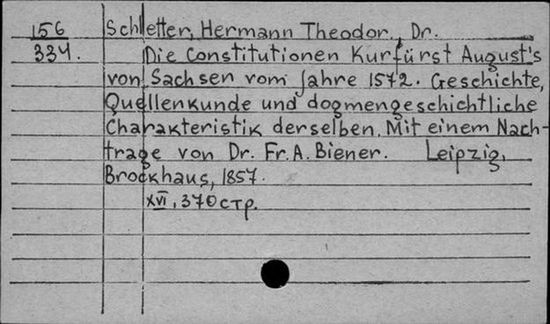 156 Schletter, Hermann Theodor, Dr.
334. Die Constitutionen Kurfürst August's
von Sachsen vom Jahre 1572. Geschichte,
Quellenkunde und dogmengeschichtliche
Charakteristik derselben. Mit einem Nach-
trage von Dr. Fr. A. Biener. Leipzig,
Brockhaus, 1857.
XVI, 370 стр.